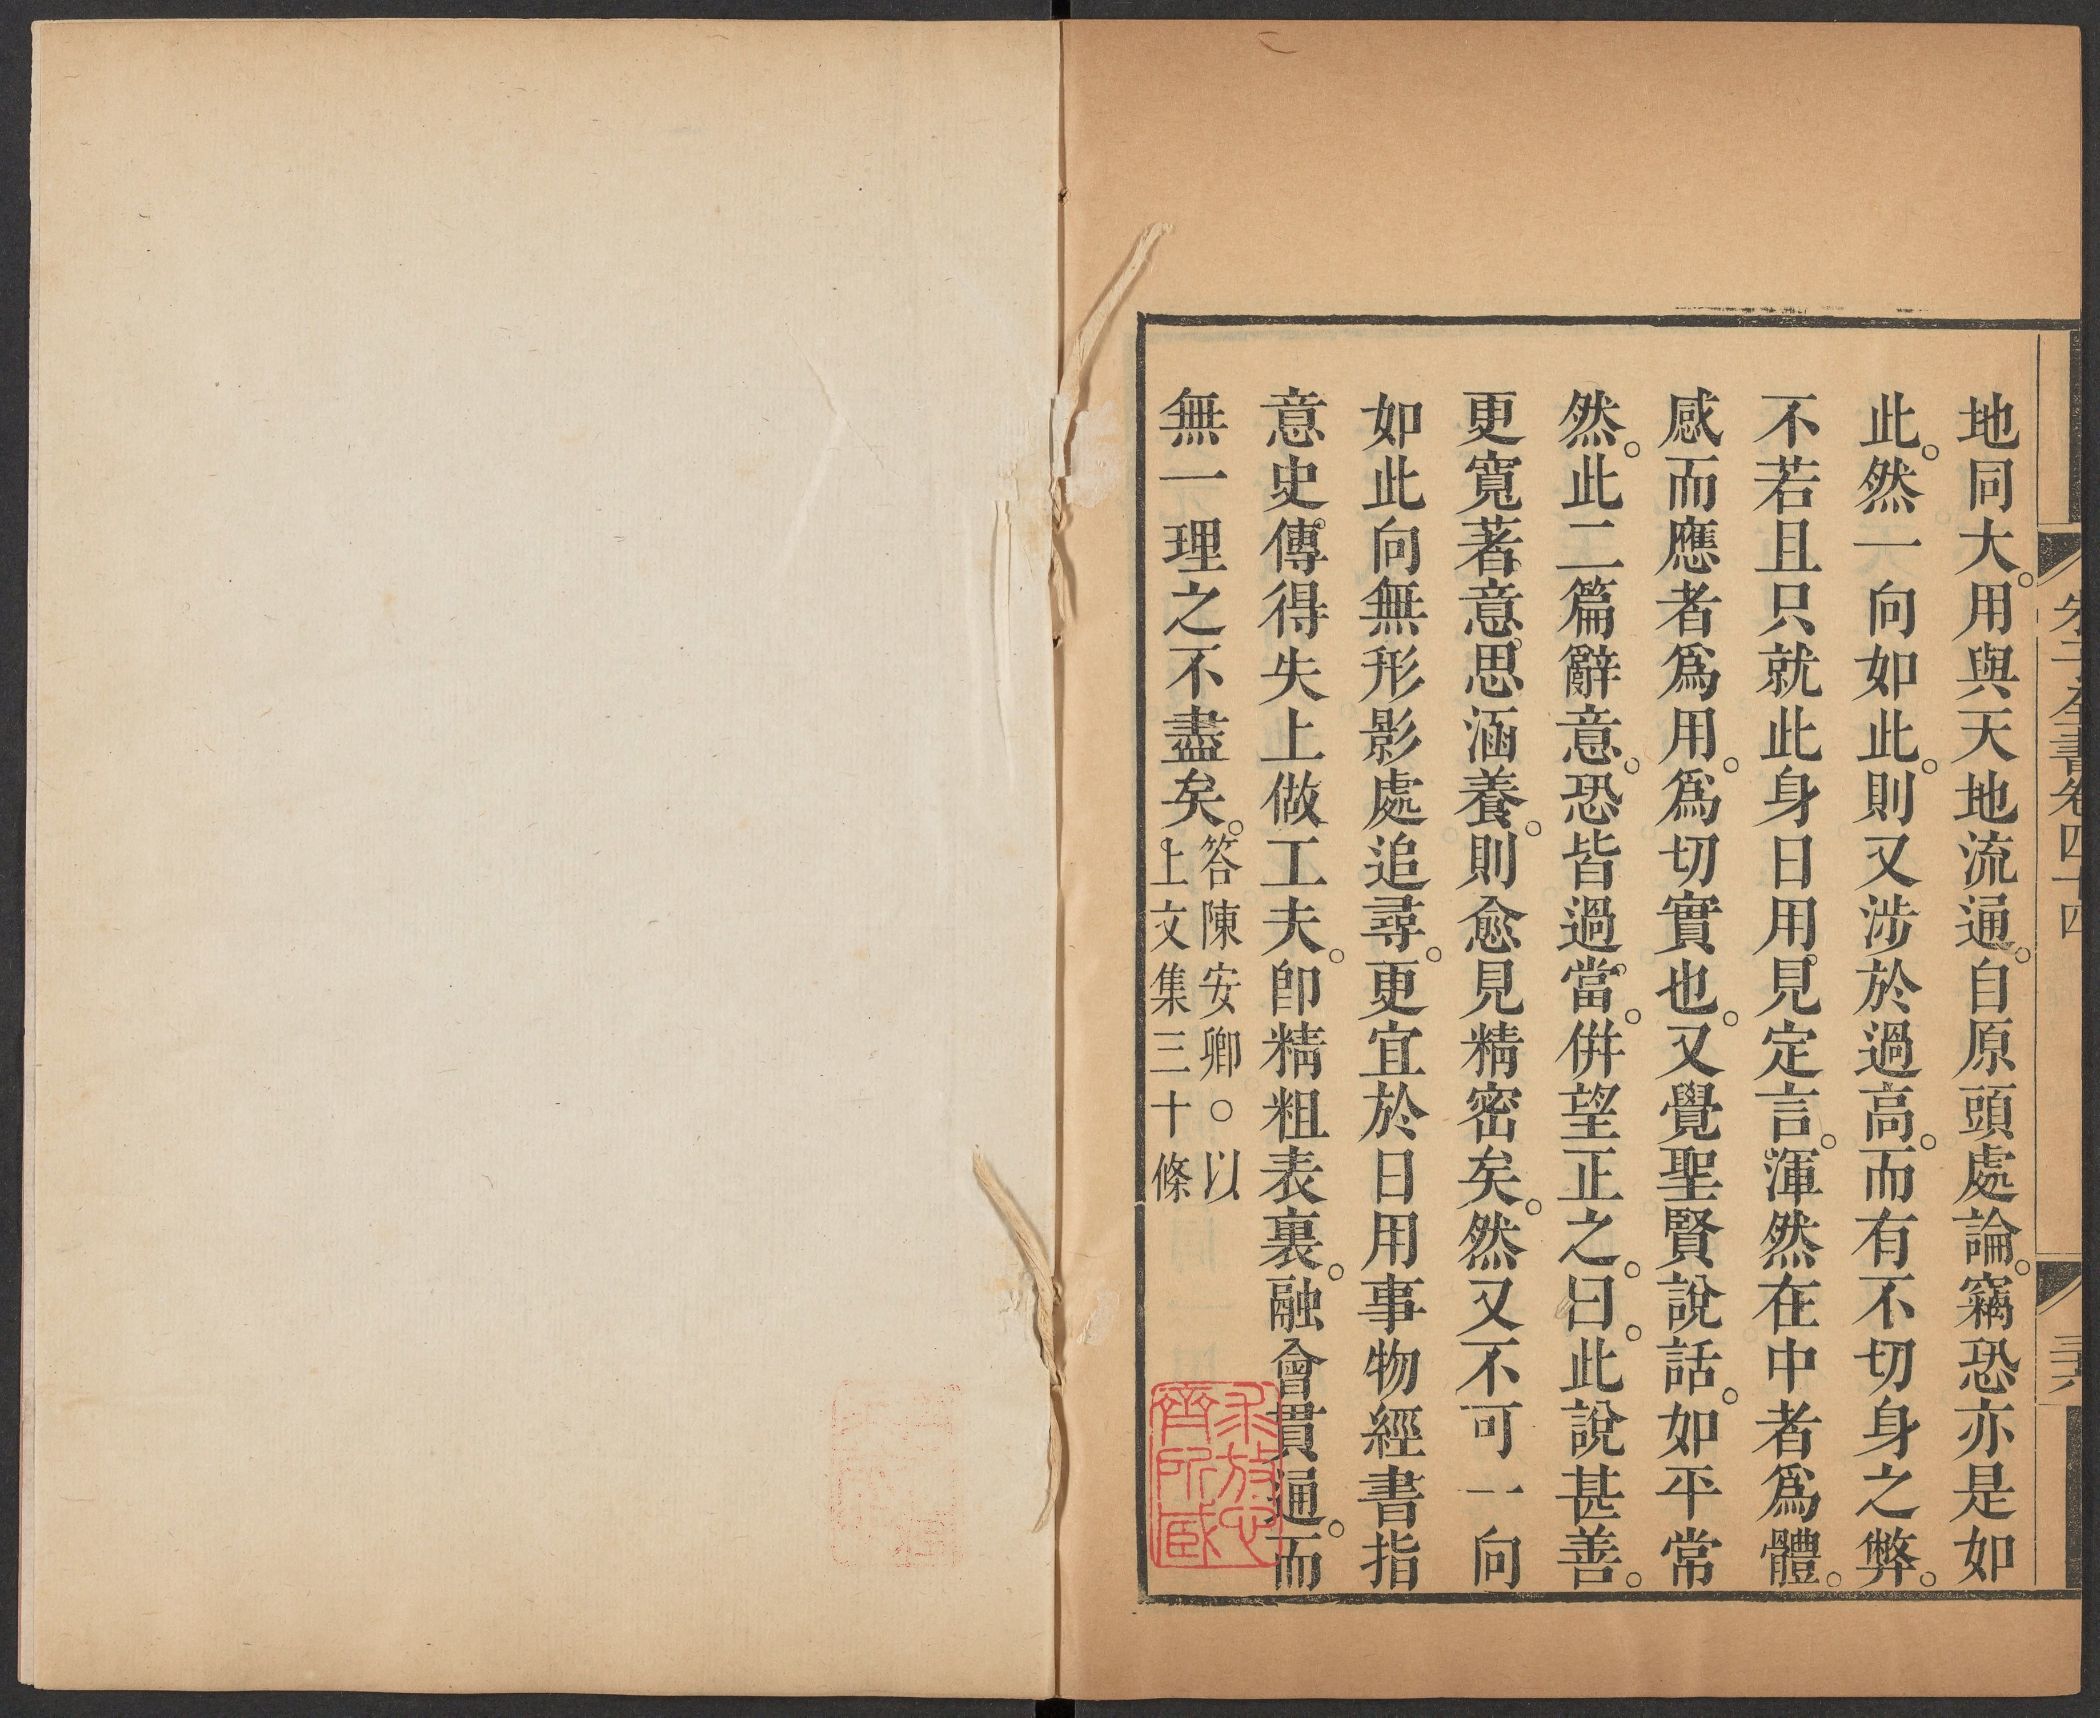 朱子全書卷四十四
地同大。用與天地流通。自原頭處論。竊恐亦是如
此。然一向如此。則又涉於過高。而有不切身之弊。
不若且只就此身日用見定言。渾然在中者爲體。
感而應者爲用。爲切實也。又覺聖賢說話。如平常
然。此二篇辭意。恐皆過當。併望正之。曰。此說甚善。
更寬著意思涵養。則愈見精密矣。然又不可一向
如此向無形影處追尋。更宜於日用事物經書指
意史傳得失上做工夫。卽精粗表裏。融會貫通。而
無一理之不盡矣。答陳安卿。○以
上文集三十條